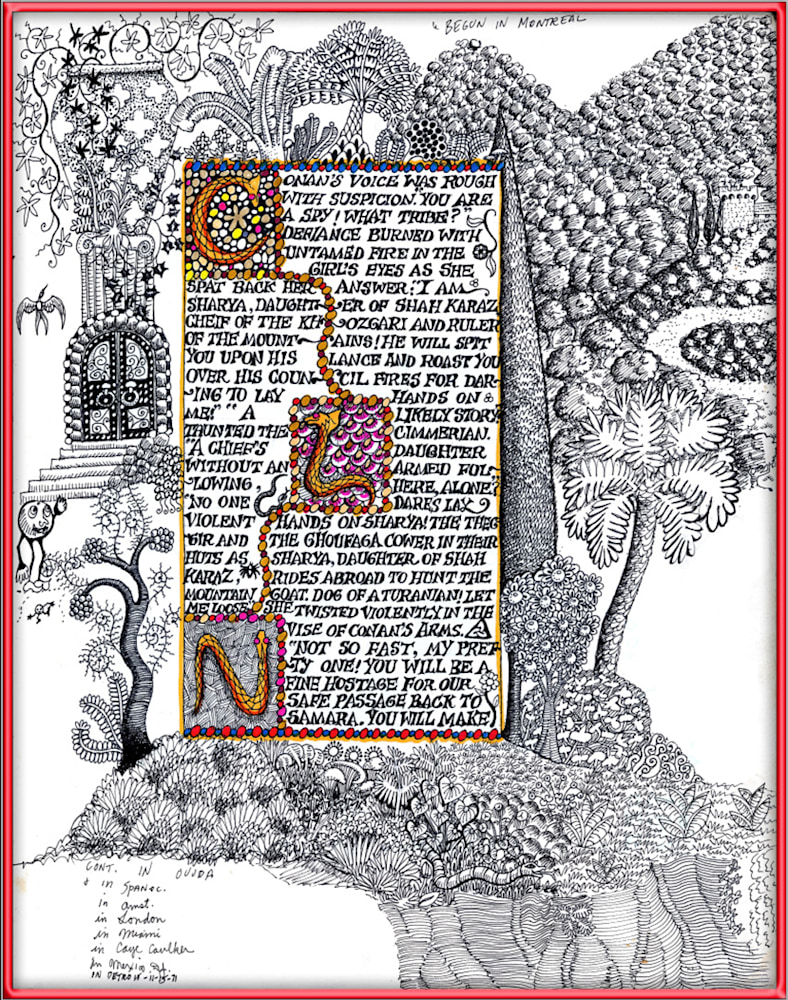 & BEGUN IN MONTREAL
CONAN'S VOICE WAS ROUGH
WITH SUSPICION. YOU ARE
A SPY! WHAT TRIBE?"
DEFIANCE BURNED WITH
UNTAMED FIRE IN THE
GIRL'S EYES AS SHE
SPAT BACK HER ANSWER: "I AM
SHARYA, DAUGHTER OF SHAH KARAZ
CHEIF OF THE KHOZGARI AND RULER
OF THE MOUNTAINS! HE WILL SPIT
YOU UPON HIS LANCE AND ROAST YOU
OVER HIS COUNCIL FIRES FOR DAR-
ING TO LAY HANDS ON
ME!" "A LIKELY STORY
TAUNTED THE CIMMERIAN.
"A CHIEF'S DAUGHTER
WITHOUT AN ARMED FOL-
LOWING, HERE, ALONE?"
"NO ONE DARES LAY
VIOLENT HANDS ON SHARYA! THE THEG-
GIR AND THE GHOUFAGA COWER IN THEIR
HUTS AS SHARYA, DAUGHTER OF SHAH
KARAZ, RIDES ABROAD TO HUNT THE
MOUNTAIN GOAT. DOG OF A TURANIAN! LET
ME LOOSE! SHE TWISTED VIOLENTLY IN THE
VISE OF CONAN'S ARMS.
"NOT SO FAST, MY PRET-
TY ONE! YOU WILL BE A
FINE HOSTAGE FOR OUR
SAFE PASSAGE BACK TO
SAMARA. YOU WILL MAKE
L
N
CONT. IN
& in
in Amst.
in London
in Miami
in Caye Caulker
in
IN DETROIT